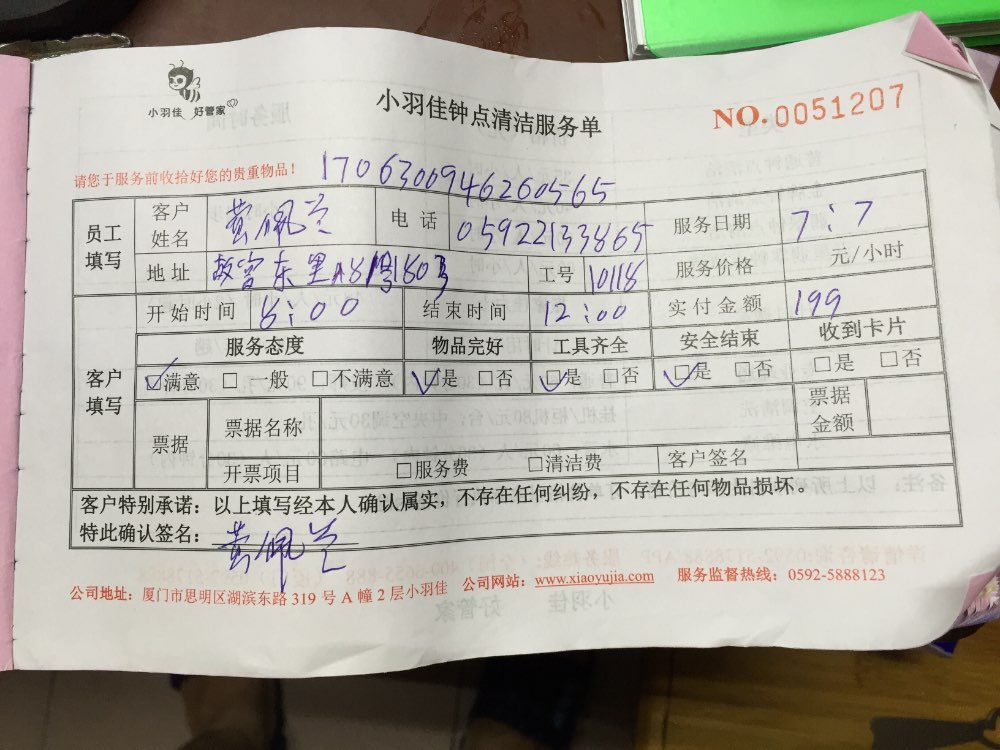 小羽佳 好管家
小羽佳钟点清洁服务单
NO.0051207
请您于服务前收拾好您的贵重物品!
1706300946260565
员工填写 客户姓名 黄佩兰 电话 05922133865 服务日期 7:7
地址 故宫东里 1803 工号 10118 服务价格 元/小时
客户填写 开始时间 8:00 结束时间 12:00 实付金额 199
服务态度 物品完好 工具齐全 安全结束 收到卡片
☑满意 □一般 □不满意 ☑是 □否 ☑是 □否 ☑是 □否 □是 □否
票据 票据名称 票据金额
开票项目 □服务费 □清洁费 客户签名
客户特别承诺:以上填写经本人确认属实,不存在任何纠纷,不存在任何物品损坏。
特此确认签名:黄佩兰
公司地址:厦门市思明区湖滨东路 319 号 A 幢 2 层小羽佳 公司网站:www.xiaoyujia.com 服务监督热线:0592-5888123